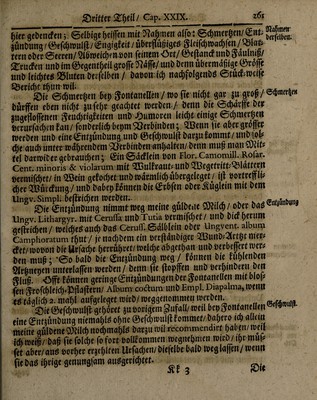 Dritter Theil/ Cap. XXIX. 261
hier gedencken; Selbige heissen mit Nahmen also: Schmertzen/ Ent-
zündung/ Geschwulst/ Engigkeit/ überflüßiges Fleischwachsen/ Blat-
tern oder Seeren/ Abweichen von seinem Ort/ Gestanck und Fäulniß/
Trucken und im Gegentheil grosse Nässe/ und denn übermäßige Grösse
und leichtes Bluten derselben/ davon ich nachfolgends Stück-weise
Bericht thun wil.
Nahmen
derselben.
Die Schmertzen bey Fontanellen/ wo sie nicht gar zu groß/
dürffen eben nicht zu sehr geachtet werden/ denn die Schärffe der
zugeflossenen Feuchtigkeiten und Humoren leicht einige Schmertzen
verursachen kan/ sonderlich beym Verbinden; Wenn sie aber grösser
werden und eine Entzündung und Geschwulst darzu kommt/ und sol-
che auch unter währendem Verbinden anhalten/ denn muß man Mit-
tel darwider gebrauchen; Ein Säcklein von Flor. Camomill. Rosar.
Cent. minoris & violarum mit Wullkraut- und Wegetritt-Blättern
vermischet/ in Wein gekochet und wärmlich übergeleget/ ist vortreffli-
cher Würckung/ und dabey können die Erbsen oder Küglein mit dem
Ungv. Simpl. bestrichen werden.
Schmertzen
Die Entzündung nimmt weg meine güldene Milch/ oder das
Ungv. Lithargyr. mit Cerussa und Tutia vermischet/ und dick herum
gestrichen/ welches auch das Ceruss. Sälblein oder Ungvent. album
Camphoratum thut/ je nachdem ein verständiger Wund-Artzt mer-
cket/ wovon die Ursache herrühret/ welche abgethan und verbessert wer-
den muß; So bald die Entzündung weg/ können die kühlenden
Artzneyen unterlassen werden/ denn sie stopffen und verhindern den
Fluß. Offt können geringe Entzündungen der Fontanellen mit blos-
sen Froschleich-Pflastern/ Albúm coctum und Empl. Diapalma, wenn
es täglich 2. mahl aufgeleget wird/ weggenommen werden.
Entzündung
Die Geschwulst gehöret zu vorigem Zufall/ weil bey Fontanellen
eine Entzündung niemahls ohne Geschwulst kommet/ dahero ich allein
meine güldene Milch nochmahls darzu wil recommendirt haben/ weil
ich weiß/ daß sie solche so fort vollkommen wegnehmen wird/ ihr müs-
set aber/ aus vorher erzehlten Ursachen/ dieselbe bald weg lassen/ wenn
sie das ihrige genungsam ausgerichtet.
Geschwulst.
Kk 3 Die